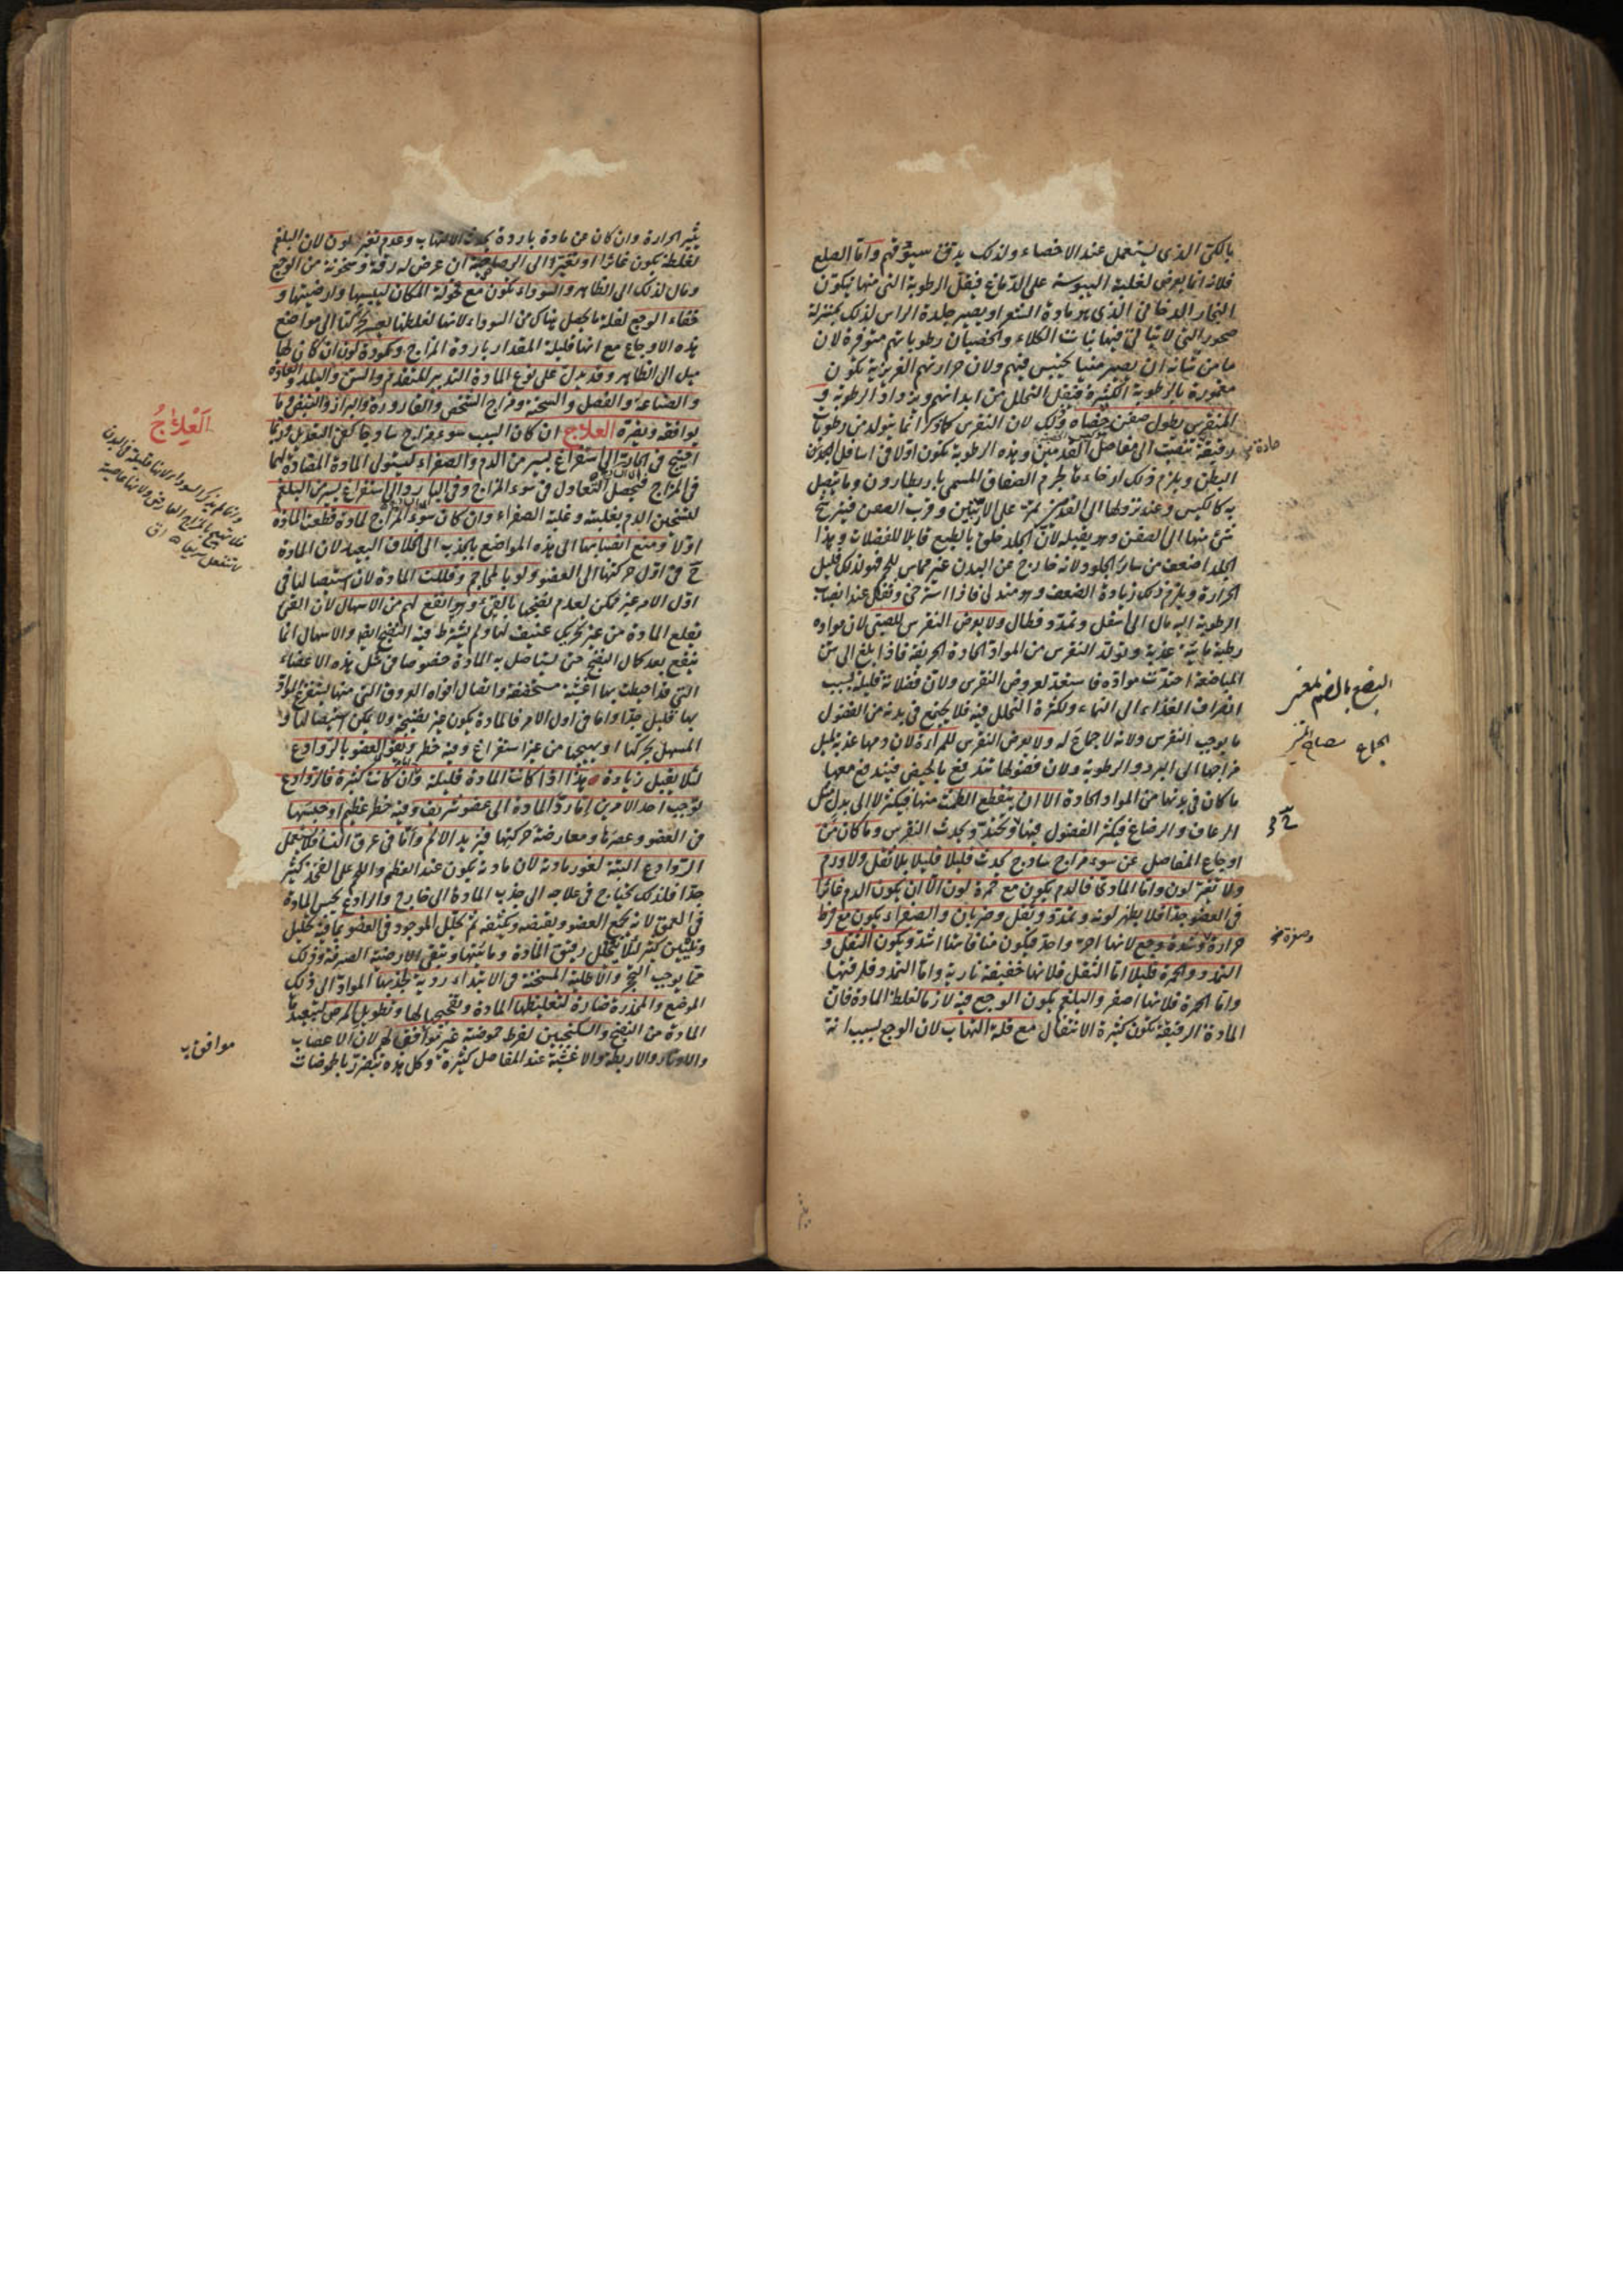 بالكى الذى يستعمل عند الاخصاء ولذلك يدق سيوقهم واما الصلع
فلانه انما يعرض لغلبة اليبوسة على الدماغ فيقل الرطوبة التى منها يتكون
البخار الدخانى الذى هو مادة الشعر او يصير جلدة الراس لذلك بمنزلة
صخور التى لا يتاتى فيها نبات الكلاء والخصيان رطوباتهم متوفرة لان
ما من شانه ان يصير منيا يحتبس فيهم ولان حرارتهم الغريزية تكون
مغمورة بالرطوبة الكثيرة فيقل التحلل من ابدانهم ويزداد الرطوبة و
المنقرس يطول صفن خصاه وذلك لان النقرس كما ذكر انما يتولد من رطوبات
رقيقة تنصب الى مفاصل القدمين وهذه الرطوبة تكون اولا فى اسافل
البطن ويلزم ذلك ارخاء ما لجرم الصفاق المسمى باريطارون وما يتصل
به كالكيس وعند نزولها الى القدمين تمر على الاربيتين وقرب الصفن فيترشح
شئ منها الى الصفن وهو يقبله لان الجلد خلق بالطبع قابلا للفضلات وهذا
الجلد اضعف من سائر الجلود ولانه خارج عن البدن غير مماس للحم فهو لذلك قليل
الحرارة ويلزم ذلك زيادة الضعف وهو متدلى فاذا استرخى وثقل عند انصباب
الرطوبة اليه مال الى اسفل وتمدد فطال ولا يعرض النقرس للصبى لان مواده
رطبة مائية عذبة وتولد النقرس من المواد الحادة الحريفة فاذا بلغ الى سن
المباضعة احتدت مواده فاستعد لعروض النقرس ولان فضلاته قليلة بسبب
انصراف الغذاء الى النماء ولكثرة التحلل فيه فلا يجتمع فى بدنه من الفضول
ما يوجب النقرس ولانه لا جماع له ولا يعرض النقرس للمراءة لان دمها عذبة لميل
مزاجها الى البرد والرطوبة ولان فضولها تندفع بالحيض فيندفع معها
ما كان فى بدنها من المواد الحادة الا ان ينقطع الطمث منها فيكثر لا الى بدل مثل
الرعاف والرضاع فيكثر الفضول فيها وتحتد ويحدث النقرس وما كان من
اوجاع المفاصل عن سوء مزاج ساذج يحدث قليلا قليلا بلا ثقل ولا ورم
ولا تغير لون واما المادى فالدم يكون مع حمرة لون الا ان يكون الدم غائرا
فى العضو جدا فلا يظهر لونه وتمدد وثقل وضربان والصفراء يكون مع فرط
حرارة وشدة وجع لانها احر واحد فيكون منافاتها اشد ويكون الثقل و
التمدد والحمرة قليلا اما الثقل فلانها خفيفة نارية واما التمدد فلرقتها
واما الحمرة فلانها اصفر والبلغم يكون الوجع فيه لازما لغلظ المادة فان
المادة الرقيقة تكون كثيرة الانتقال مع قلة التهاب لان الوجع بسبب انه
حادة
البضع بالضم
الجماع
وصفرة
يثير الحرارة وان كان عن مادة باردة يحدث الالتهاب وعدم تغير لون لان البلغم
لغلظه يكون غائرا او تغيرا الى الرصاصية ان عرض له رقة وسخونة من الوجع
ومال لذلك الى الظاهر والسوداء تكون مع قحولة المكان ليبسها وارضيتها و
خفاء الوجع لقلة ما يحصل هناك من السوداء لانها لغلظها يعسر حركتها الى مواضع
هذه الاوجاع مع انها قليلة المقدار باردة المزاج وكمودة لون ان كان لها
ميل الى الظاهر وقد يدل على نوع المادة التدبير المتقدم والسن والبلد والعادة
والصناعة والفصل والسحنة ومزاج الشخص والقارورة والبراز والنبض وما
يوافقه ويضره العلاج ان كان السبب سوء مزاج ساذجا كفى التعديل وربما
احتيج فى الحار الى استفراغ يسير من الدم والصفراء لسئول المادة المضادة لهما
فى المزاج فيحصل التعادل فى سوء المزاج وفى البارد الى استفراغ يسير من البلغم
لتسخين الدم بغلبته وغلبة الصفراء وان كان سوء المزاج لمادة قطعت المادة
اولا ومنع انصبابها الى هذه المواضع بالجذب الى الخلاف البعيد لان المادة
ح فى اول حركتها الى العضو ولو بالمحاجم وقللت المادة لان استيصالها فى
اول الامر غير ممكن لعدم نضجها بالقئ وهو انفع لهم من الاسهال لان القئ
يقلع المادة من غير تحريك عنيف لها ولم يشترط فيه النضج ايضا والاسهال انما
ينفع بعد كمال النضج حتى يستاصل به المادة خصوصا فى مثل هذه الاعضاء
التى قد احيطت بها اغشية مستحصفة واتصال افواه العروق التى منها يستفرغ المواد
بها قليل جدا واما فى اول الامر فالمادة يكون غير نضيجة ولا يمكن استيصالها و
المسهل يحركها او يهيجها من غير استفراغ وفيه خطر ويقوى العضو بالروادع
لئلا يقبل زيادة هذا اذا كانت المادة قليلة وان كانت كثيرة فالروادع
توجب احد الامرين اما رد المادة الى عضو شريف وفيه خطر عظيم او حبسها
فى العضو وعصرها ومعارضة حركتها فيزيد الالم واما فى عرق النسا فلا يستعمل
الروادع البتة لغور مادته لان مادته يكون عند العظم واللحم على الفخذ كثير
جدا فلذلك يحتاج فى علاجه الى جذب المادة الى خارج والرادع يحبس المادة
فى العمق لانه يجمع العضو ويقبضه ويكثفه ثم تحلل الموجود فى العضو بما فيه تحليل
وتليين كثير لئلا يتحلل رقيق المادة ومائيتها ويبقى الارضية الصرفة وذلك
مما يوجب التحجر والاطلية المسخنة فى الابتداء ردية لجذبها المواد الى ذلك
الموضع والمخدرة ضارة لتغليظها المادة وتفجيجها لها وتطويل المرض لتبعيد
المادة من النضج والسكنجبين لفرط حموضته غير موافق لهم لان الاعصاب
والاوتار والاربطة والاغشية عند المفاصل كثيرة وكل هذه يتضرر بالحموضات
اَلْعِلَاجُ
وانما لم يذكر السوداء لانها قليلة فى البدن
موافق